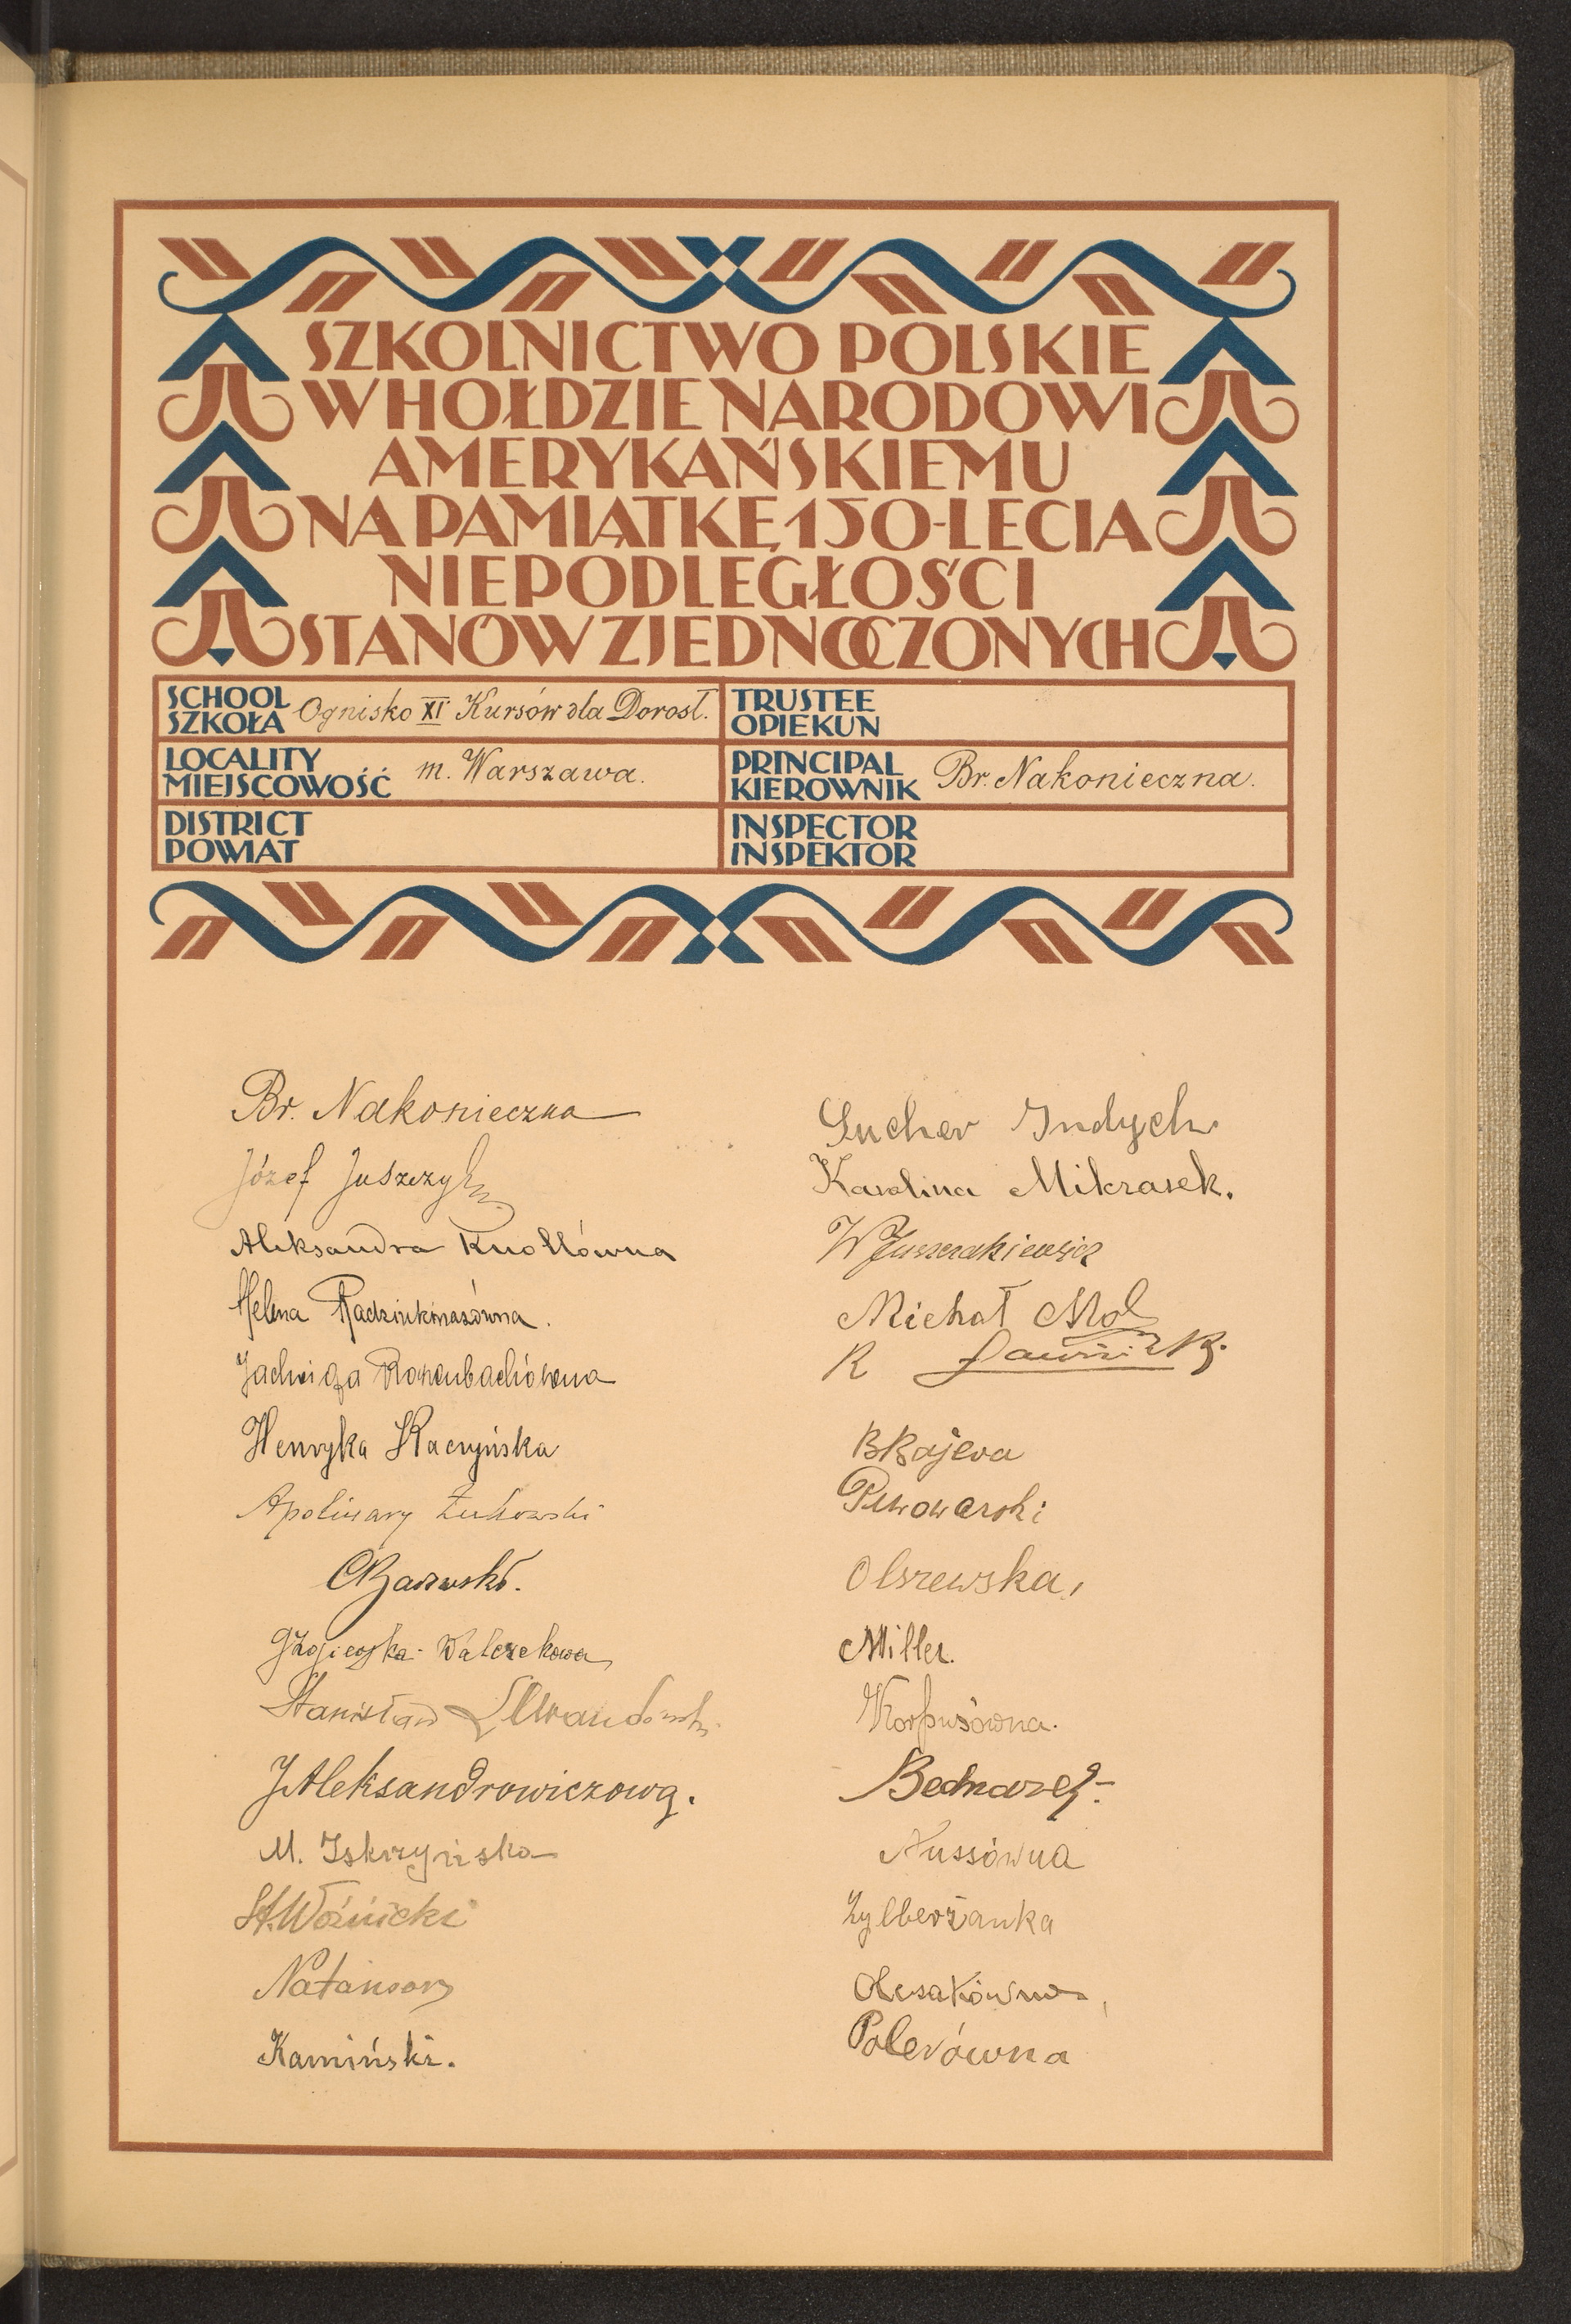 SZKOLNICTWO POLSKIE
W HOŁDZIE NARODOWI
AMERYKAŃSKIEMU
NA PAMIĄTKĘ 150-LECIA
NIEPODLEGŁOŚCI
STANÓW ZJEDNOCZONYCH
SCHOOL
SZKOŁA
Ognisko XI Kursów dla Dorosł.
TRUSTEE
OPIEKUN
LOCALITY
MIEJSCOWOŚĆ
m. Warszawa.
PRINCIPAL
KIEROWNIK
Br. Nakonieczna.
DISTRICT
POWIAT
INSPECTOR
INSPEKTOR
Br. Nakonieczna
Józef
Aleksandra Knollówna
Helena
Jadwiga
Henryka Kaczyńska
Apolinary Żukowski
Walczakowa
Stanisław
J Aleksandrowiczowa.
M. Iskrzyńska
St. Woźnicki
Natanson
Kamiński.
Indych
Karolina Mikrasek.
Michał Mol
R
B Bajera
Piwowarski
Olszewska,
Miller.
Korpusówna.
Bednarek
Nussówna
Zylberżanka
Olesakówna,
Polerówna